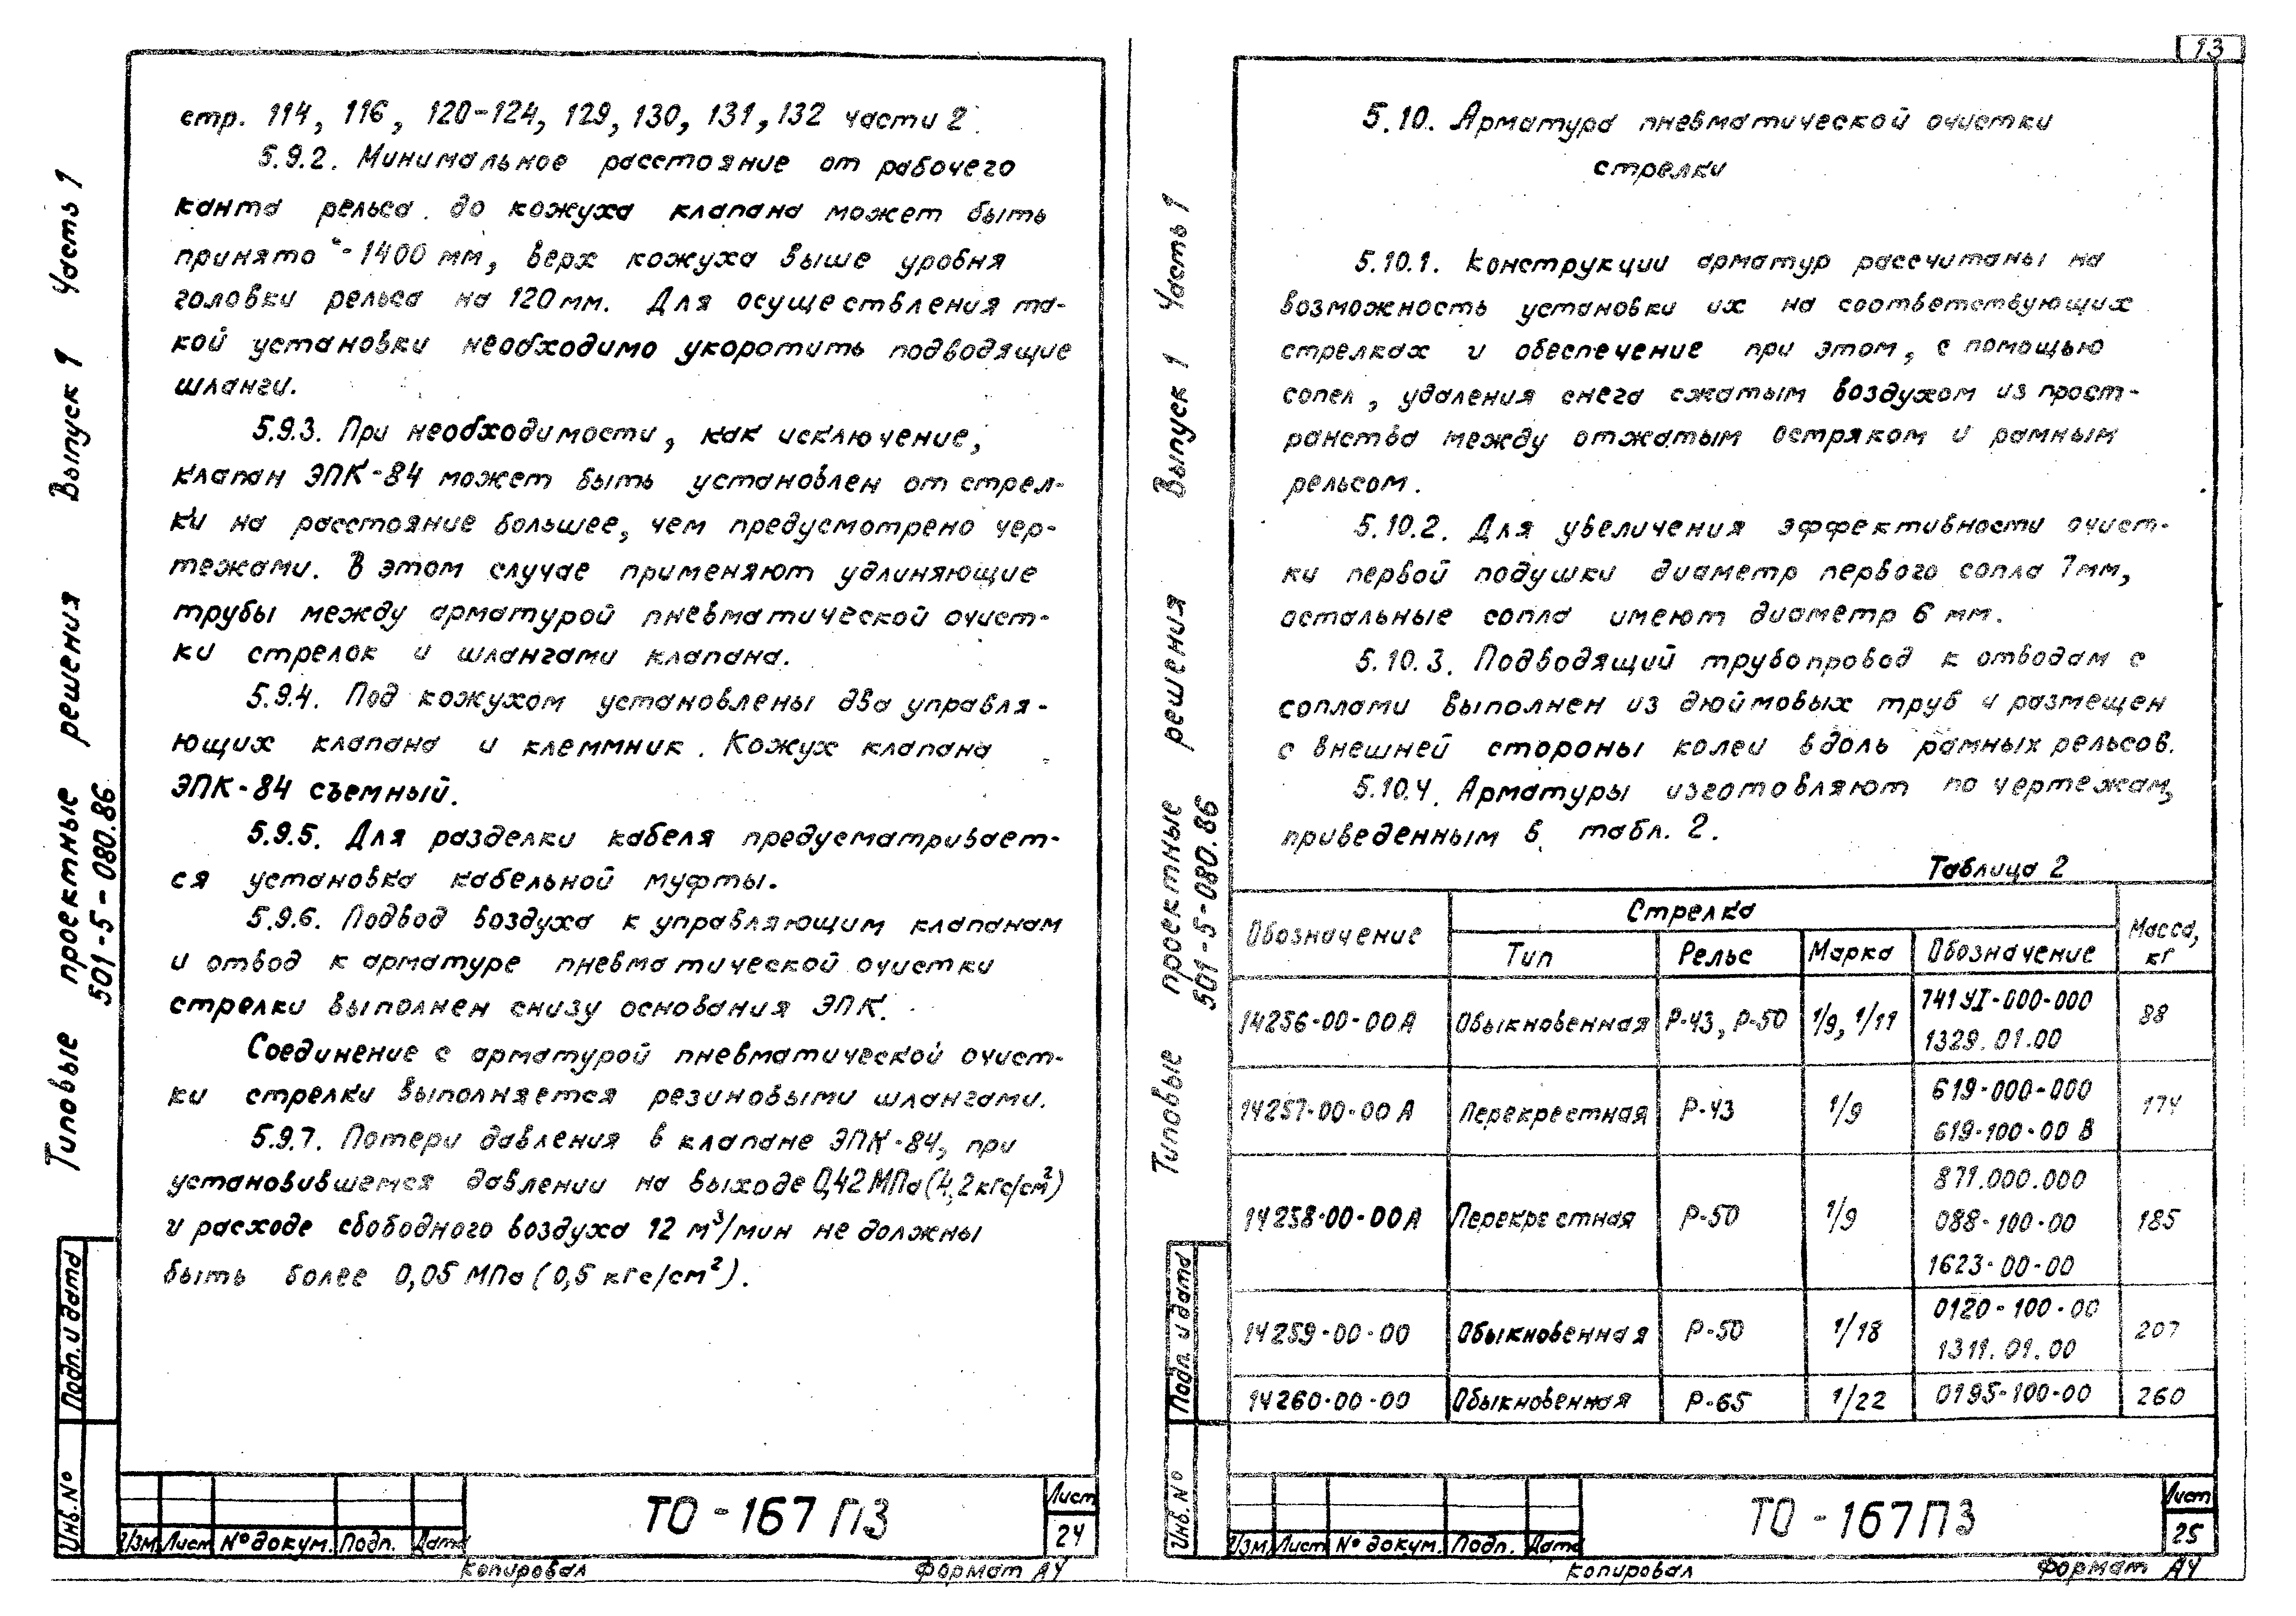 стр. 114, 116, 120-124, 129, 130, 131, 132 части 2.
5.9.2. Минимальное расстояние от рабочего
канта рельса до кожуха клапана может быть
принято - 1400 мм, верх кожуха выше уровня
головки рельса на 120 мм. Для осуществления та-
кой установки необходимо укоротить подводящие
шланги.
5.9.3. При необходимости, как исключение,
клапан ЭПК-84 может быть установлен от стрел-
ки на расстояние большее, чем предусмотрено чер-
тежами. В этом случае применяют удлиняющие
трубы между арматурой пневматической очист-
ки стрелок и шлангами клапана.
5.9.4. Под кожухом установлены два управля-
ющих клапана и клеммник. Кожух клапана
ЭПК-84 съемный.
5.9.5. Для разделки кабеля предусматривает-
ся установка кабельной муфты.
5.9.6. Подвод воздуха к управляющим клапанам
и отвод к арматуре пневматической очистки
стрелки выполнен снизу основания ЭПК.
Соединение с арматурой пневматической очист-
ки стрелки выполняется резиновыми шлангами.
5.9.7. Потери давления в клапане ЭПК-84, при
установившемся давлении на выходе 0,42 МПа (4,2 кгс/см²)
и расходе свободного воздуха 12 м³/мин не должны
быть более 0,05 МПа (0,5 кгс/см²).
Типовые проектные решения Выпуск 1 Часть 1
501-5-080.86
Подп. и дата
Инв. №
Изм. Лист № докум. Подп. Дата
ТО-167 ПЗ
Лист
24
Копировал Формат А4
13
5.10. Арматура пневматической очистки
стрелки
5.10.1. Конструкции арматур рассчитаны на
возможность установки их на соответствующих
стрелках и обеспечение при этом, с помощью
сопел, удаления снега сжатым воздухом из прост-
ранства между отжатым остряком и рамным
рельсом.
5.10.2. Для увеличения эффективности очист-
ки первой подушки диаметр первого сопла 7 мм,
остальные сопла имеют диаметр 6 мм.
5.10.3. Подводящий трубопровод к отводам с
соплами выполнен из дюймовых труб и размещен
с внешней стороны колеи вдоль рамных рельсов.
5.10.4. Арматуры изготовляют по чертежам,
приведенным в табл. 2.
Таблица 2
Обозначение Стрелка Масса, кг
Тип Рельс Марка Обозначение
14256-00-00А Обыкновенная Р-43, Р-50 1/9, 1/11 741УІ-000-000 88
1329.01.00
14257-00-00 А Перекрестная Р-43 1/9 619-000-000 174
619-100-00 В
14258-00-00А Перекрестная Р-50 1/9 871.000.000 185
088-100-00
1623-00-00
14259-00-00 Обыкновенная Р-50 1/18 0120-100-00 207
1311.01.00
14260-00-00 Обыкновенная Р-65 1/22 0195-100-00 260
Типовые проектные решения Выпуск 1 Часть 1
501-5-080.86
Подп. и дата
Инв. №
Изм. Лист № докум. Подп. Дата
ТО-167 ПЗ
Лист
25
Копировал Формат А4